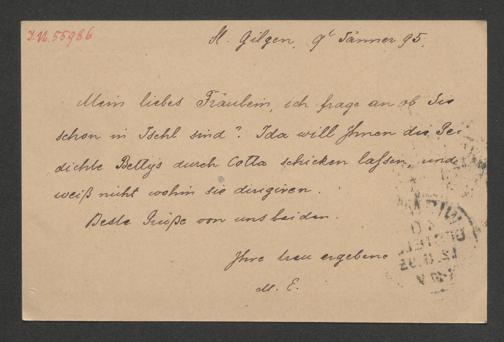 I.N. 55986
St. Gilgen, 9t Jänner 95.
Mein liebes Fräulein, ich frage an ob Sie
schon in Ischl sind? Ida will Ihnen die Ge
dichte Bettys durch Cotta schicken lassen, und
weiß nicht wohin sie dirigiren.
Beste Grüße von uns beiden.
Ihre treu ergebene
M. E.